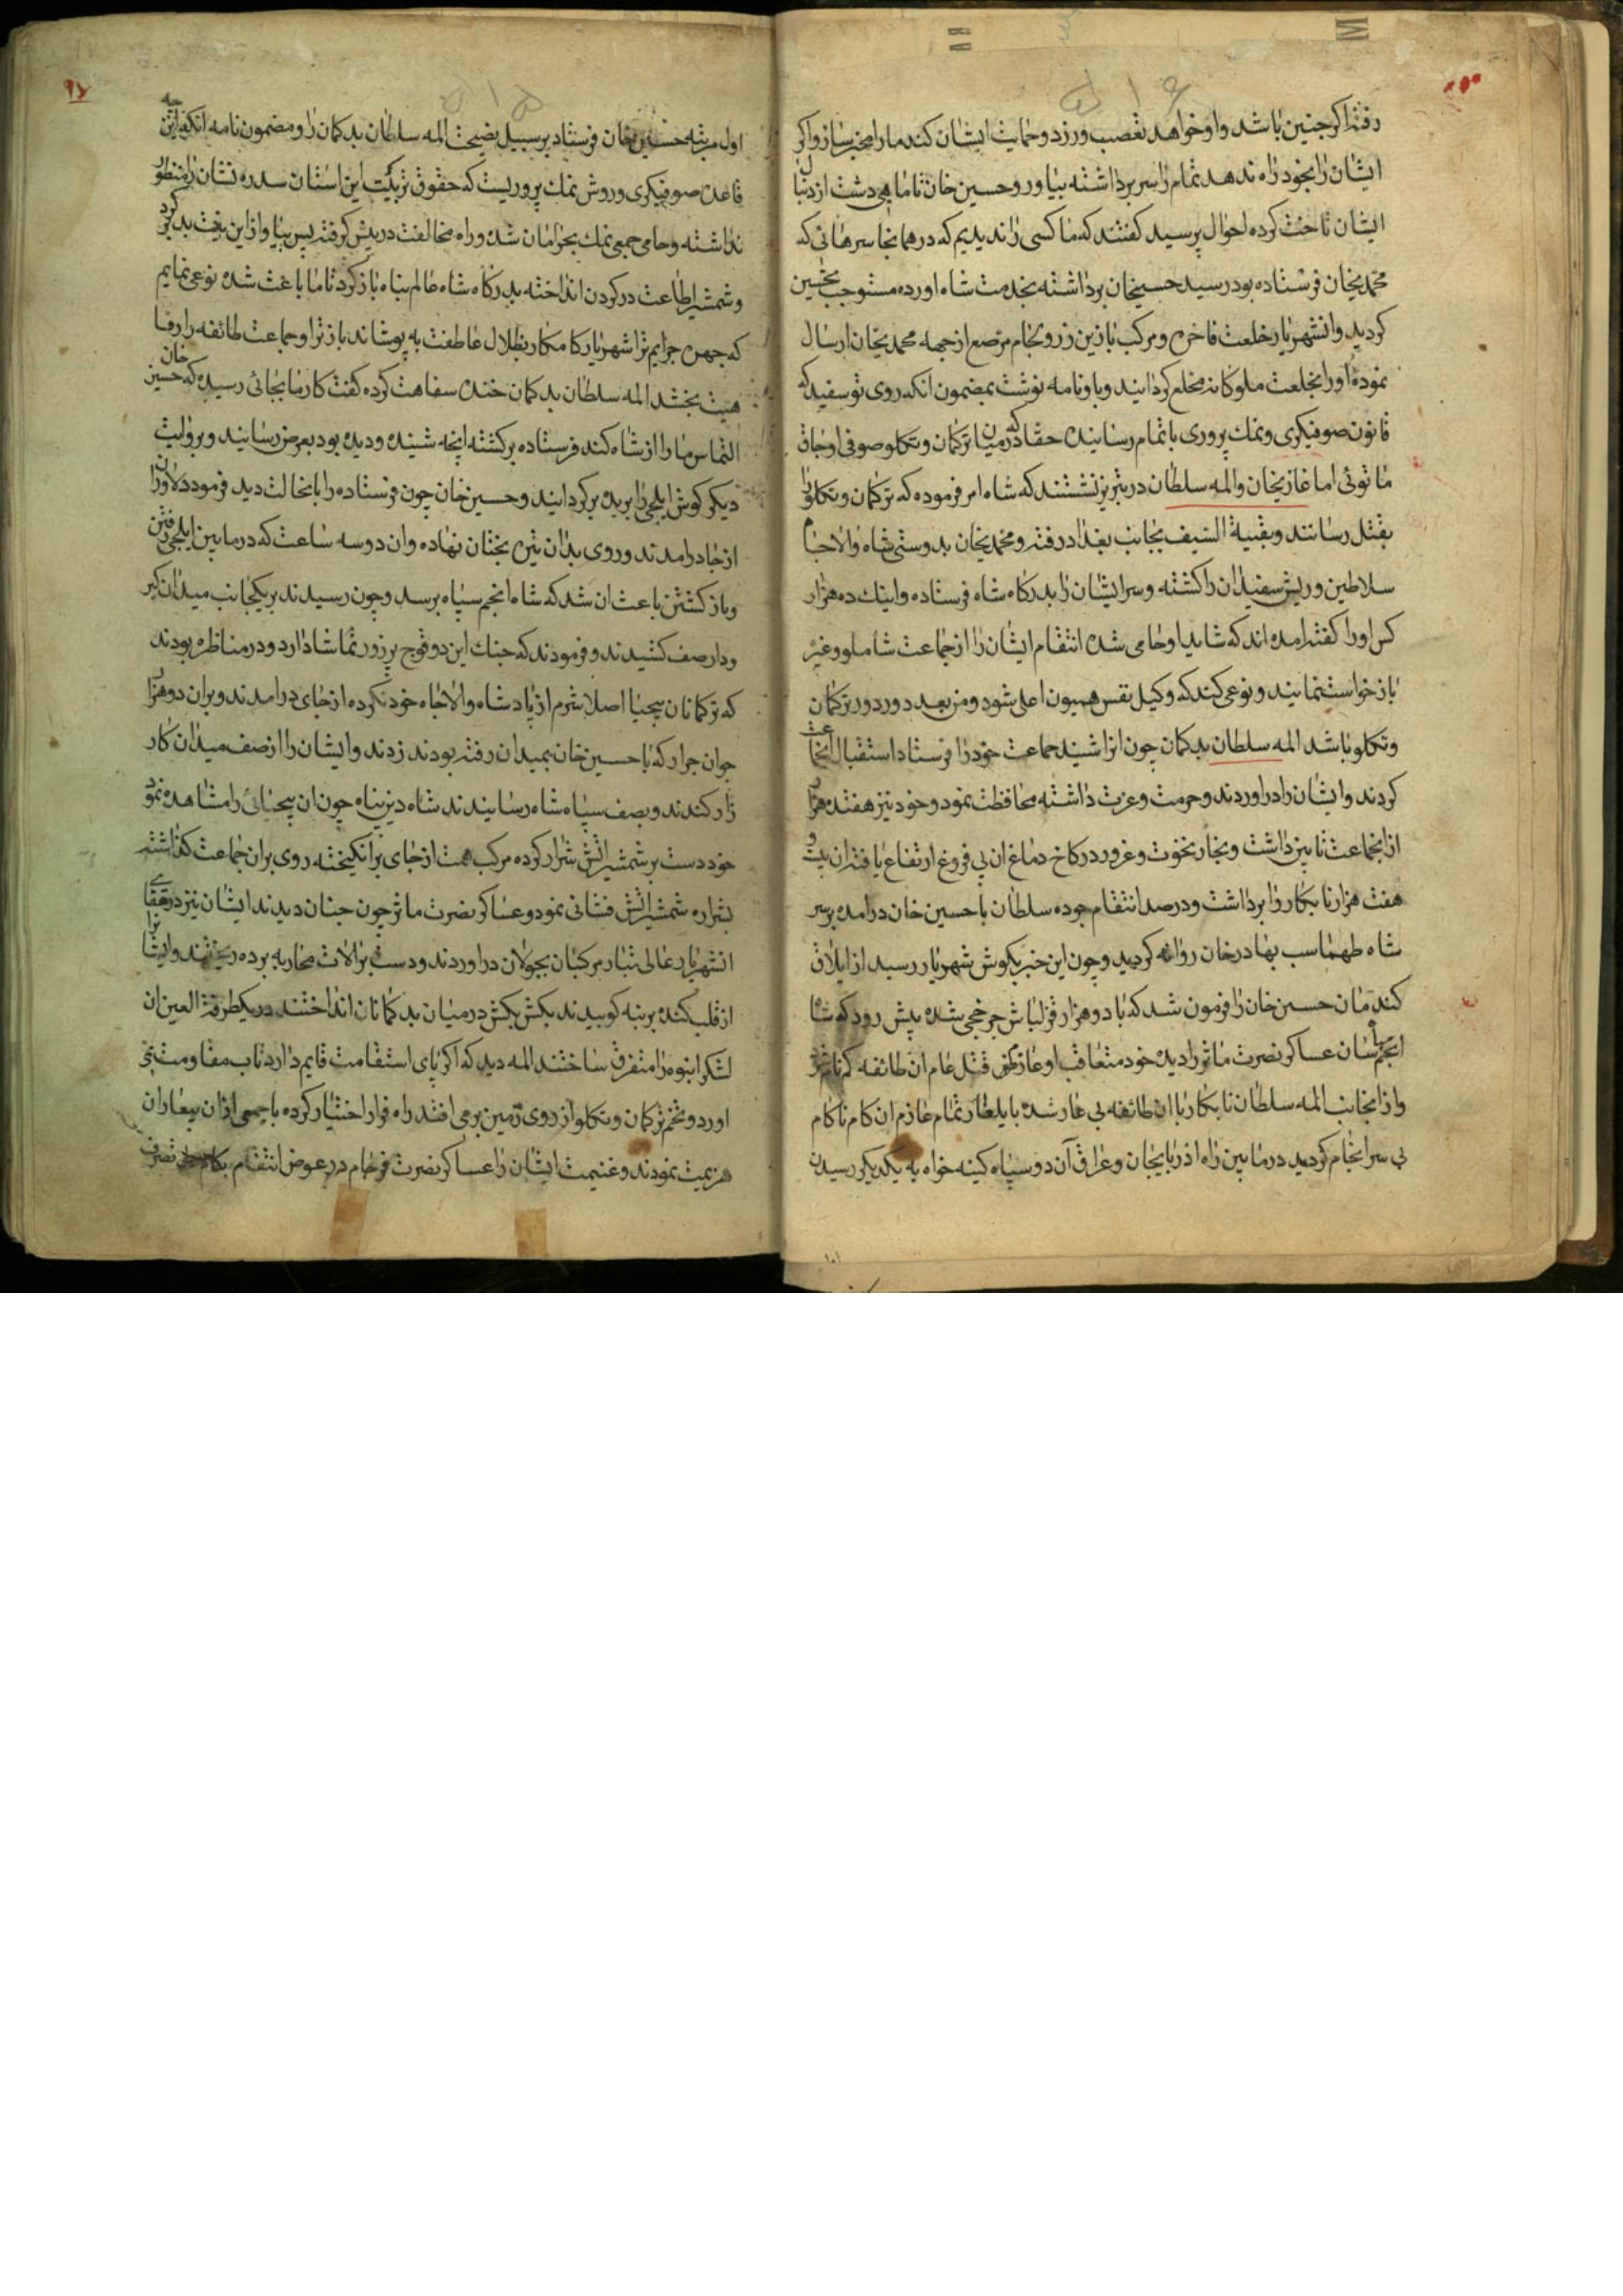 رفته اکر چنین باشد و او خواهد تعصب ورزد و حمایت ایشان کند ما را مخبر ساز و اکر
ایشان را بخود راه ندهد تمام را سر برداشته بیاور و حسین خان تا ماهی دشت از دنبال
ایشان تاخت کرده احوال پرسید کفتند که ما کسی را ندیدیم که در همانجا سرهائی که
محمدیخان فرستاده بود رسید حسیخان برداشته بخدمت شاه اورده مستوجب تحسین
کردید و انشهریار خلعت فاخره و مرکب با زین زر و لجام مرصع از جهه محمدیخان ارسال
نموده اورا بخلعت ملوکانه مخلع کردانید و باو نامه نوشت بمضمون انکه روی تو سفید که
قانون صوفیکری و نمك پروری باتمام رسانیده حقا که درمیان ترکمان و تکلو صوفی اوجاق
ما توئی اما غازیخان و المه سلطان در تبریز نشستند که شاه امر فرموده که ترکمان و تکلو را
بقتل رسانند و بقیة السیف بجانب بغداد رفته و محمدیخان بدوستی شاه والاجاه
سلاطین و ریش سفیدان را کشته و سر ایشان را بدرکاه شاه فرستاده و اینك ده هزار
کس اورا کفته امده اند که شاید او حامی شده انتقام ایشان را از جماعت شاملو و غیره
باز خواست نمایند و نوعی کند که وکیل نفس همیون اعلی شود و من بعد دور دور ترکمان
و تکلو باشد المه سلطان بدکمان چون انرا شنید جماعت خود را فرستاد استقبال انجماعت
کردند و ایشان را در اوردند و حرمت و عزت داشته محافظت نمود و خود نیز هفده هزار
از انجماعت تابین داشت و بخار نخوت و غرور در کاخ دماغ ان بی فروغ ارتفاع یافته ان بیست و
هفت هزار نابکار را برداشت و درصد انتقام جوده سلطان با حسین خان درامده بر سر
شاه طهماسب بهادرخان روانه کردید و چون این خبر بکوش شهریار رسید از ایلاق
کندمان حسین خان را فرمون شد که با دو هزار قزلباش چرخچی شده پیش رود که شاه
انجم سپاه سان عساکر نصرت ماثر را دیده خود متعاقب او عازم قتل عام ان طائفه
و از انجانب المه سلطان نابکار با ان طائفه بی عار شده بایلغار تمام عازم ان کام ناکام
بی سرانجام کردید درمابین راه اذربایجان و عراق آن دو سپاه کینه خواه به یکدیکر رسیدند
۹۷
اول مرتبه حسین خان فرستاد بر سبیل نصیحت المه سلطان بدکمان را و مضمون نامه انکه این چه
قاعده صوفیکری و روش نمك پروریست که حقوق تربیت این استان سدره نشان را منظور
نداشته و حامی جمعی نمك بحرامان شده و راه مخالفت در پیش کرفته پس بیا و از این بغیت بدکرد
و شمشیر اطاعت در کردن انداخته بدرکاه شاه عالم پناه باز کرد تا ما باعث شده نوعی نمایم
که چهره جرایم ترا شهریار کامکار بظلال عاطفت به پوشاند باز ترا و جماعت طائفه را رفا
هیت بخشد المه سلطان بدکمان خنده سفاهت کرده کفت کار ما بجائی رسیده که حسین خان
التماس ما را از شاه کند فرستاده برکشته انچه شنیده و دیده بود بعرض رسانید و بروایت
دیکر کوش ایلچی را بریده برکردانید و حسین خان چون فرستاده را بانحالت دید فرمود دلاوران
از جا درامدند و روی بدان تیره بختان نهاده وان دو سه ساعت که درمابین ایلچی رفتن
و باز کشتن باعث ان شد که شاه انجم سپاه برسد و چون رسیدند بر یکجانب میدان کیر
ودار صف کشیدند و فرمودند که جنك این دو فوج پرزور تماشا دارد و در مناظره بودند
که ترکمانان بیحیا اصلا شرم از پادشاه والاجاه خود نکرده از جای درامدند و بران دو هزار
جوان جرار که با حسین خان بمیدان رفته بودند زدند و ایشان را از صف میدان کار
زار کندند و بصف سپاه شاه رسانیدند شاه دین پناه چون ان بیحیائی را مشاهده نمود
خود دست بر شمشیر اتش شرار کرده مرکب همت از جای برانکیخته روی بران جماعت کذاشته
بشراره شمشیر اتش فشانی نمود و عساکر نصرت ماثر چون چنان دیدند ایشان نیز در قفای
انشهریار عالی تبار مرکبان بجولان در اوردند و دست بر الات محاربه برده ریختند و ایشانرا
از قلب کنده بر بنه کوبیدند بکش بکش درمیان بدکمانان انداختند در یکطرفة العین ان
لشکر انبوه را متفرق ساختند المه دید که اکر پای استقامت قایم دارد تاب مقاومت نمی
اورد و تخم ترکمان و تکلو از روی زمین بر می افتد راه فرار اختیار کرده با جمعی از ان بیعاران
هزیمت نمودند و غنیمت ایشان را عساکر نصرت فرجام در عوض انتقام تصرف